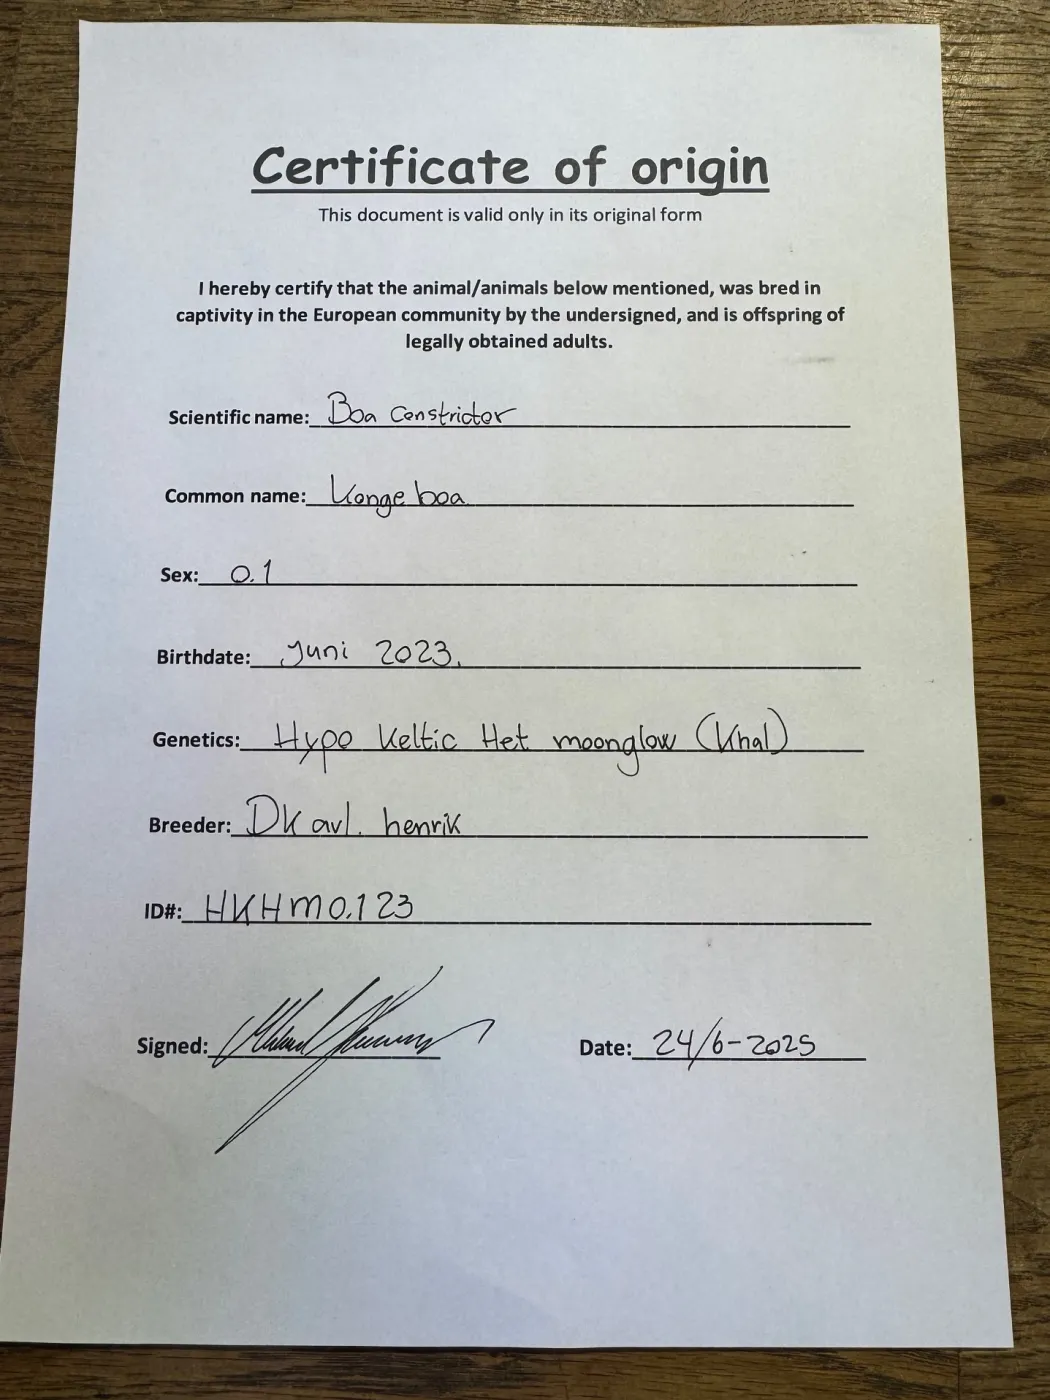 Certificate of origin
This document is valid only in its original form
I hereby certify that the animal/animals below mentioned, was bred in
captivity in the European community by the undersigned, and is offspring of
legally obtained adults.
Scientific name: Boa Constrictor
Common name: Konge boa
Sex: 0.1
Birthdate: Juni 2023.
Genetics: Hypo Keltic Het moonglow (Khal)
Breeder: DK avl. henrik
ID#: HKHM0.123
Signed:
Date: 24/6-2025